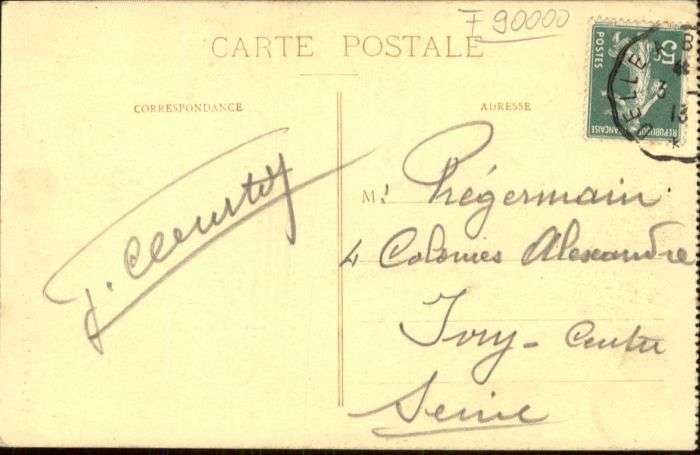 F 90000
CARTE POSTALE
CORRESPONDANCE
ADRESSE
5c
POSTES
RÉPUBLIQUE FRANÇAISE
DELLE
3
13
M. Prégermain
4 Colonies Alexandre
Ivry - Centre
Seine